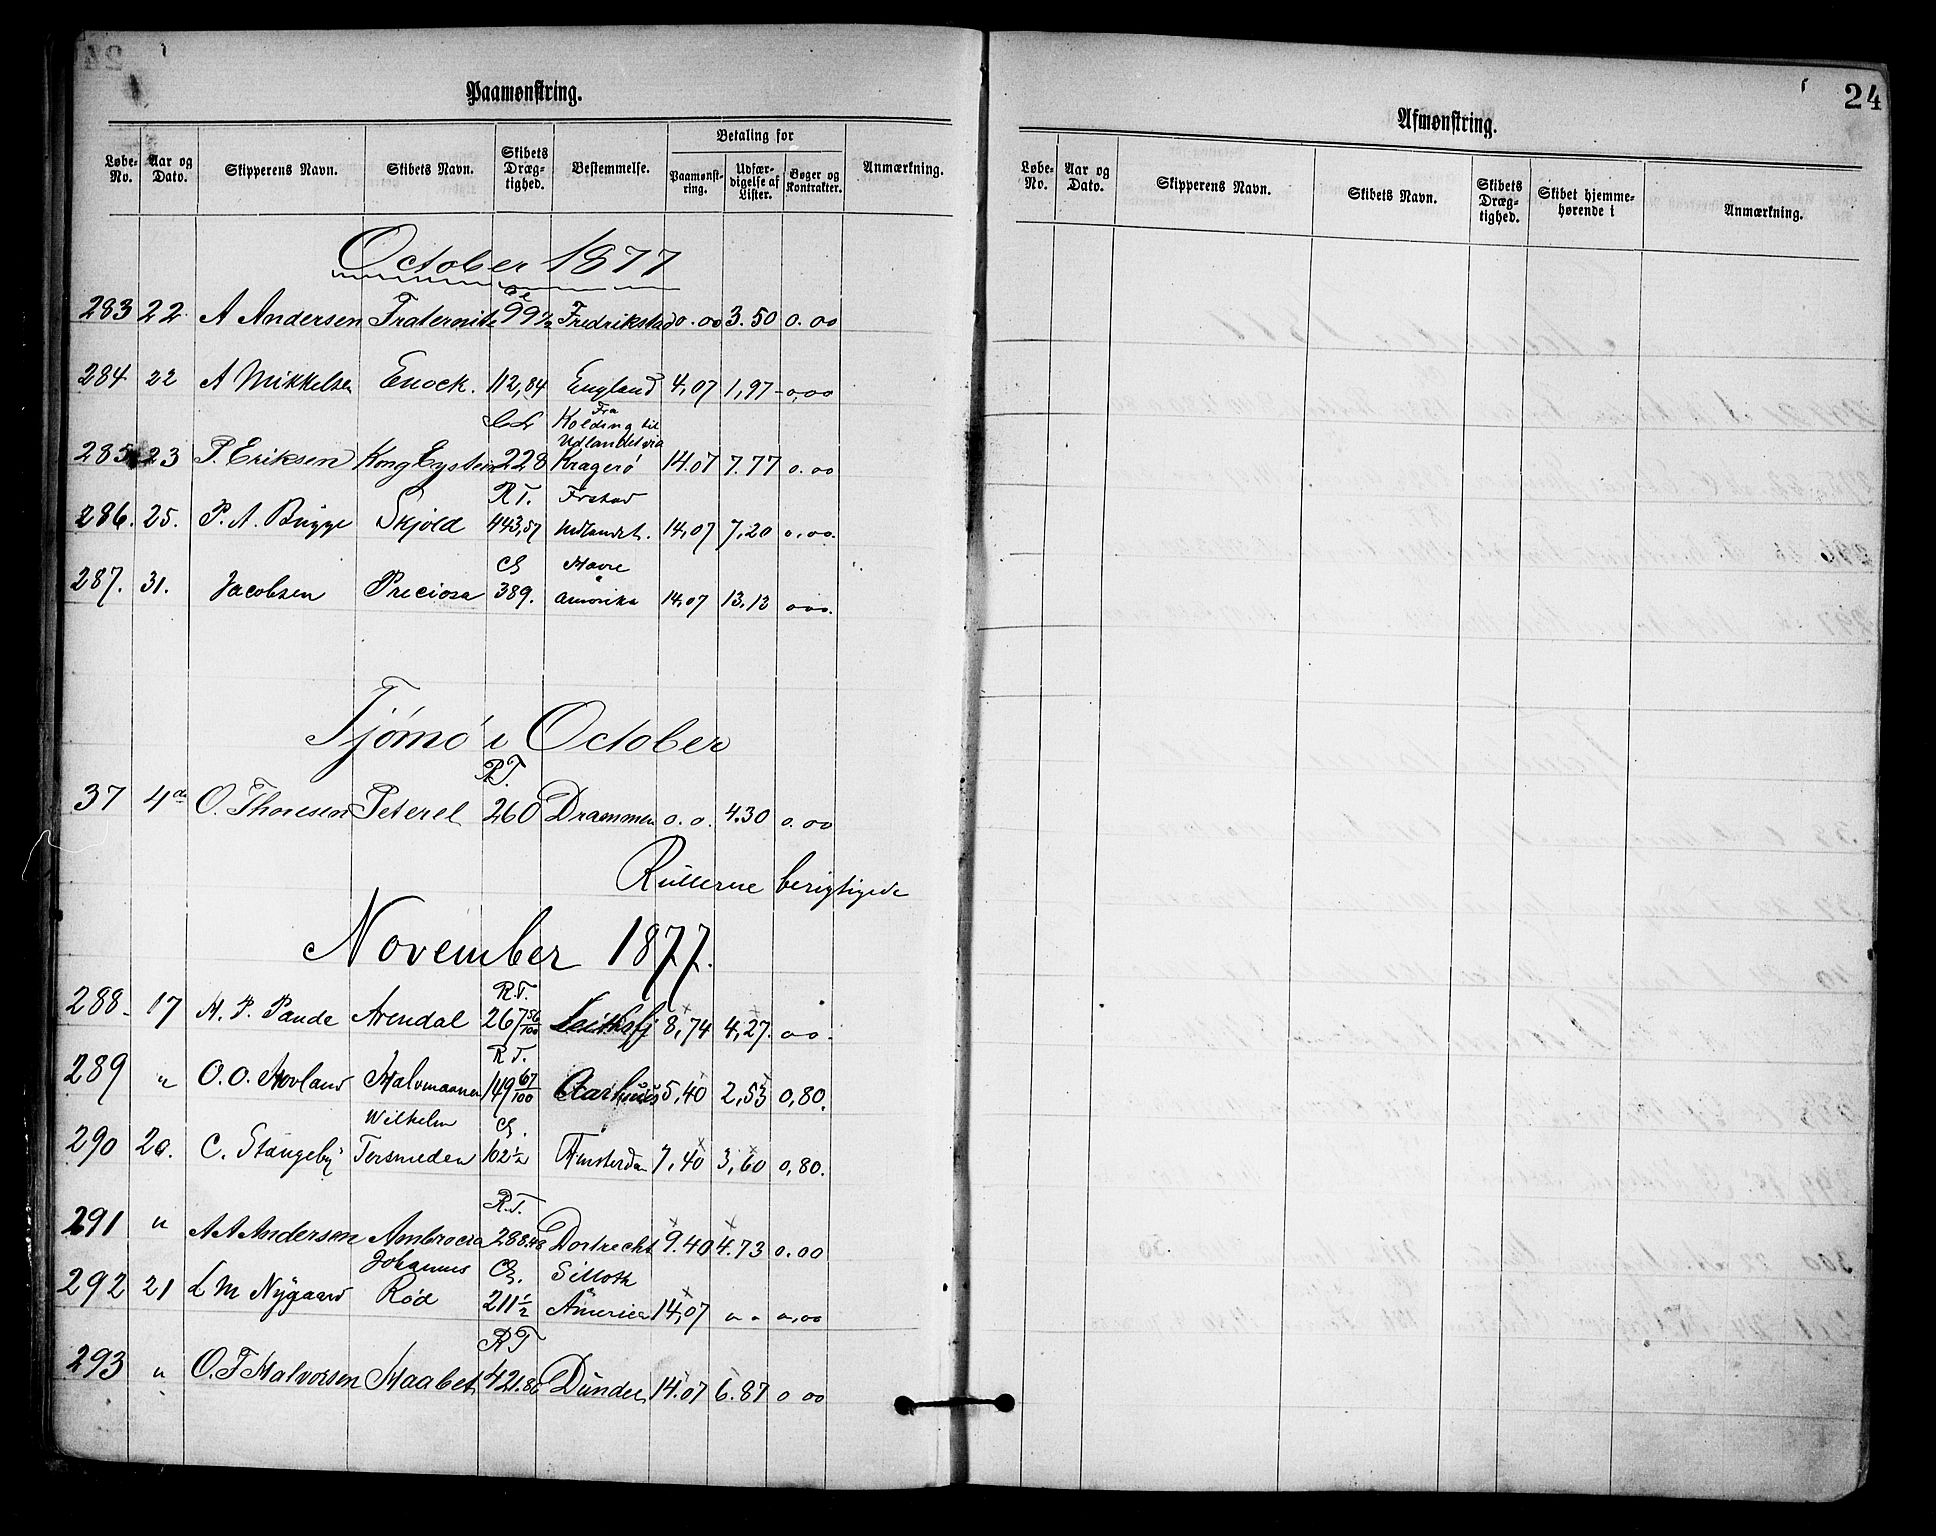 Paamønstring.
Løbe-No. Aar og Dato. Skipperens Navn. Skibets Navn. Skibets Dræg-tighed. Bestemmelse. Betaling for Paamønst-ring. Udfær-digelse af Lister. Bøger og Kontrakter. Anmærkning.
October 1877
283 22. A Andersen Fraternite 99½ Fredrikstad 0.00 3.50 0.00
284 22 A Mikkelsen Enock. 112,84 England 4,07 1,97 0,00
CL Fra Kolding til Udlandet via
285 23 P. Eriksen Kong Eystein 228 Kragerö 14.07 7.77 0.00
RT. Frstad
286. 25. P. A. Bugge Skjöld 443,57 Udlandet. 14,07 7,20 0,00.
Cl Havre
287. 31. Jacobsen Preciosa 389. Amerika 14,07 13,12 000.
Tjömö i October
R.T.
37 4de O. Thoresen Peterel 260 Drammen 0.0. 4.30 0.00
Rullerne berigtigede
November 1877.
R.T.
288 17 H. P. Pande Arendal 267 56/100 8,74 4,27. 00.
R.T.
289 " O. O. Hovland Halvmaanen 149 67/100 Aarhuus 5,40 2,53 0,80.
Wilhelm Cl.
290 20. C. Stangeby Tersmeden 102½ Amsterdam 7,40 3,60 0,80.
R.T.
291 " A A Andersen Ambrocia 288.48 Dortrecht 9.40 4.73 0.00
Johannes Cl. Silloth
292 21 L M Nygaard Röd 211½ America 14,07 " " 0,00
RT
293 " O. T Halvorsen Haabet 421.86 Dundee 14.07 6.87 0 00
24
Afmønstring.
Løbe-No. Aar og Dato. Skipperens Navn. Skibets Navn. Skibets Dræg-tighed. Skibet hjemme-hørende i Anmærkning.